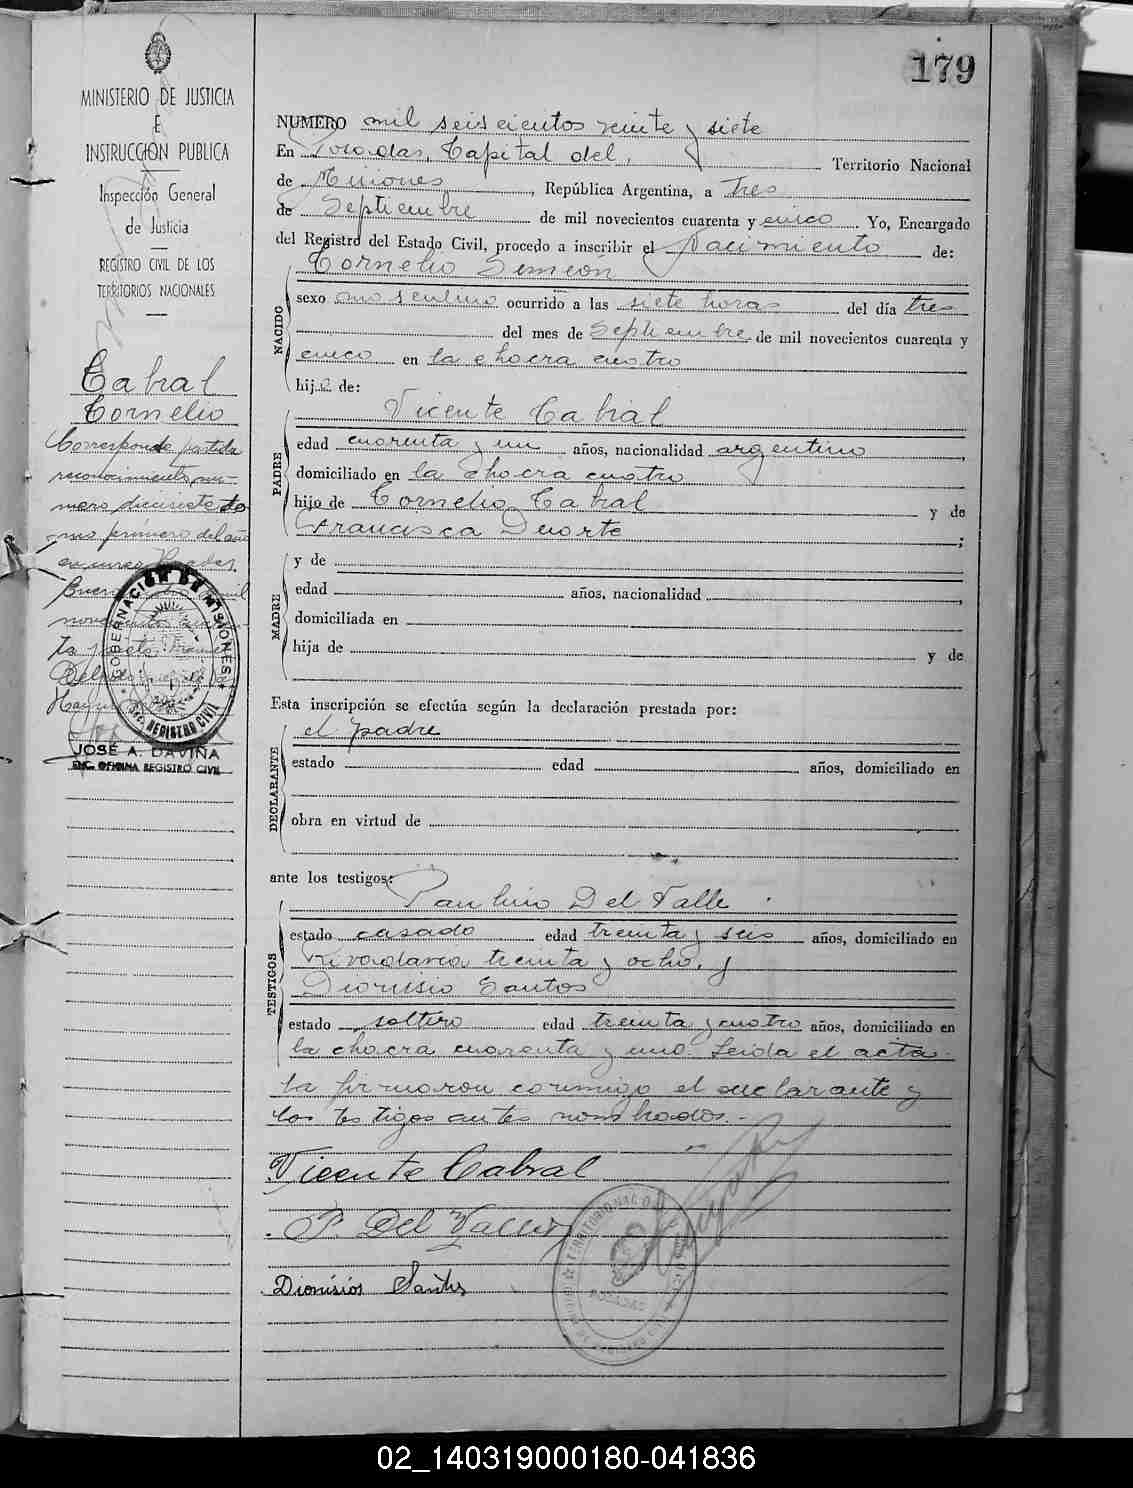 179
MINISTERIO DE JUSTICIA
E
INSTRUCCIÓN PUBLICA
Inspección General
de Justicia
REGISTRO CIVIL DE LOS
TERRITORIOS NACIONALES
Cabral
Cornelio
Corresponde partida
reconocimiento nu-
mero diecisiete to
mo primero del año
en curso
JOSÉ A. DAVIÑA
ENC. OFICINA REGISTRO CIVIL
GOBERNACION DE MISIONES
REGISTRO CIVIL
NUMERO mil seiscientos veinte y siete
En Posadas, Capital del, Territorio Nacional
de Misiones, República Argentina, a tres
de Septiembre de mil novecientos cuarenta y cinco Yo, Encargado
del Registro del Estado Civil, procedo a inscribir el Nacimiento de:
Cornelio Simeón
NACIDO
sexo masculino ocurrido a las siete horas del día tres
del mes de Septiembre de mil novecientos cuarenta y
cinco en la chacra cuatro
hijo de:
Vicente Cabral
PADRE
edad cuarenta y un años, nacionalidad argentino,
domiciliado en la chacra cuatro
hijo de Cornelio Cabral y de
Francisca Duarte;
MADRE
y de
edad años, nacionalidad,
domiciliada en
hija de y de
Esta inscripción se efectúa según la declaración prestada por:
el padre
DECLARANTE
estado edad años, domiciliado en
obra en virtud de
ante los testigos:
Paulino Del Valle
TESTIGOS
estado casado edad treinta y seis años, domiciliado en
Rivadavia treinta y ocho. y
Dionisio Santos
estado soltero edad treinta y cuatro años, domiciliado en
la chacra cuarenta y uno. Leida el acta
la firmaron conmigo el declarante y
los testigos antes nombrados.-
Vicente Cabral
P. Del Valle
Dionisios Santos
TERRITORIO NACIONAL
POSADAS
02_140319000180-041836